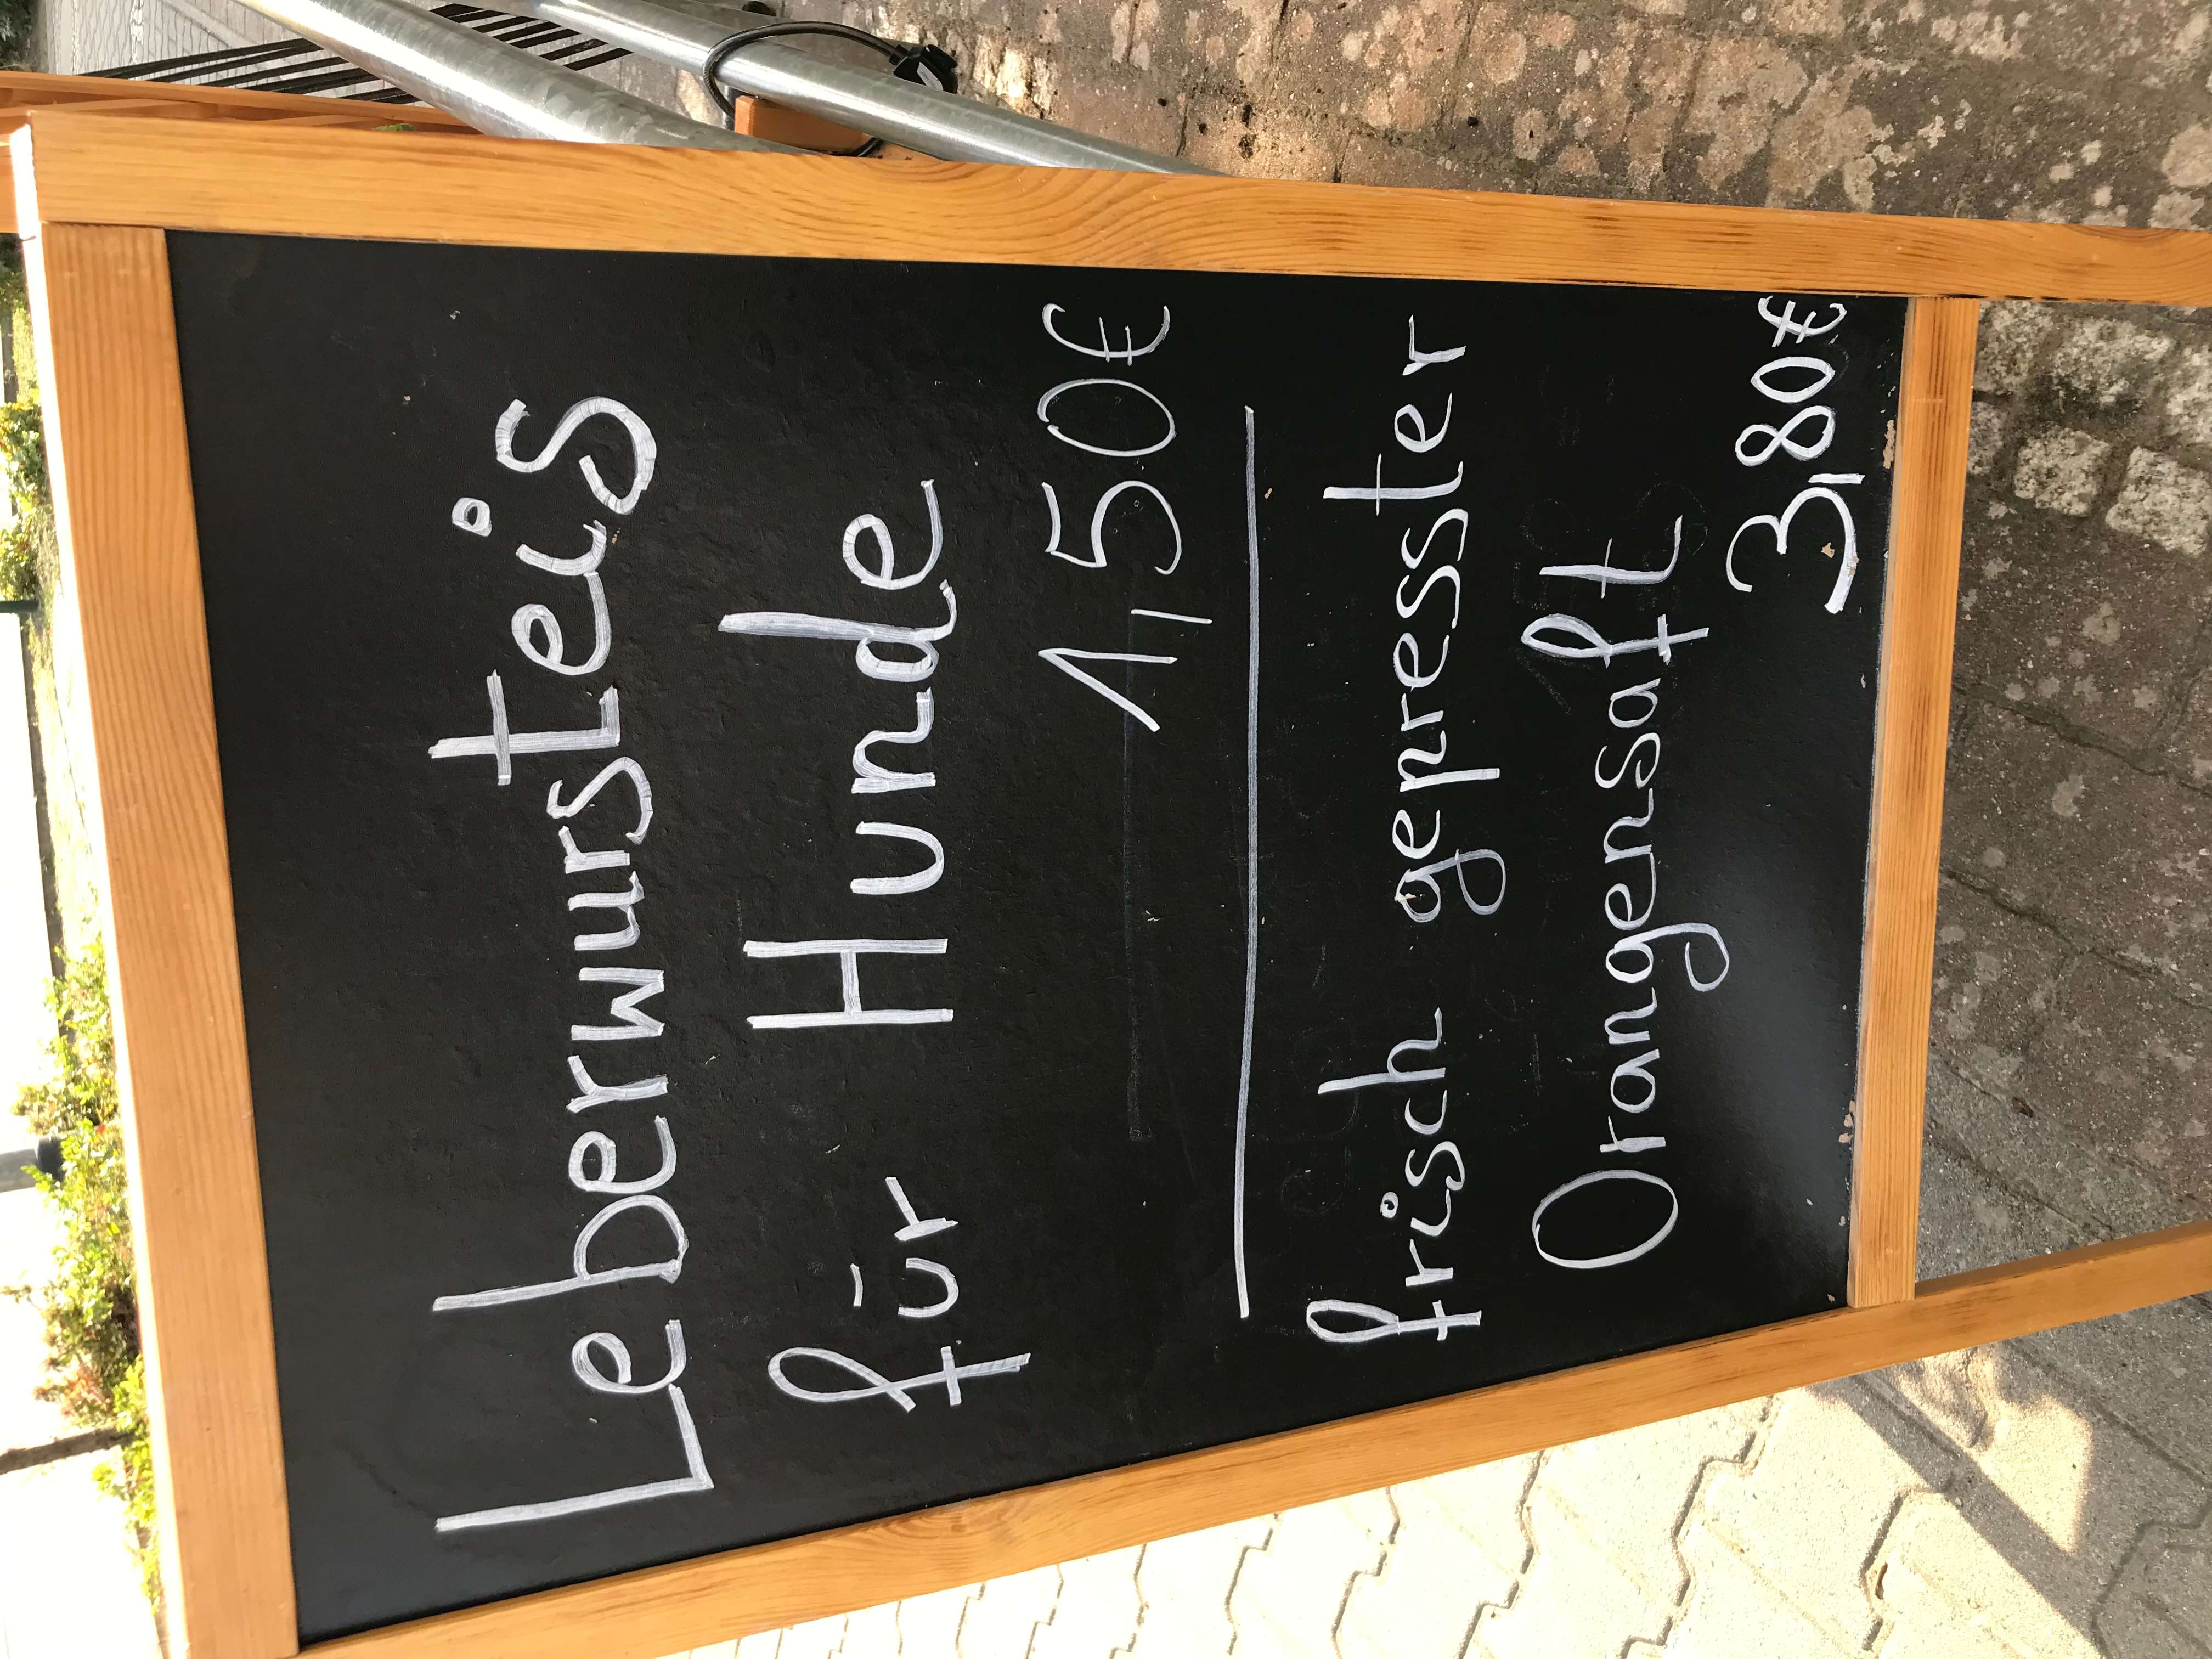 Leberwursteis
für Hunde
1,50€
frisch gepresster
Orangensaft
3,80€